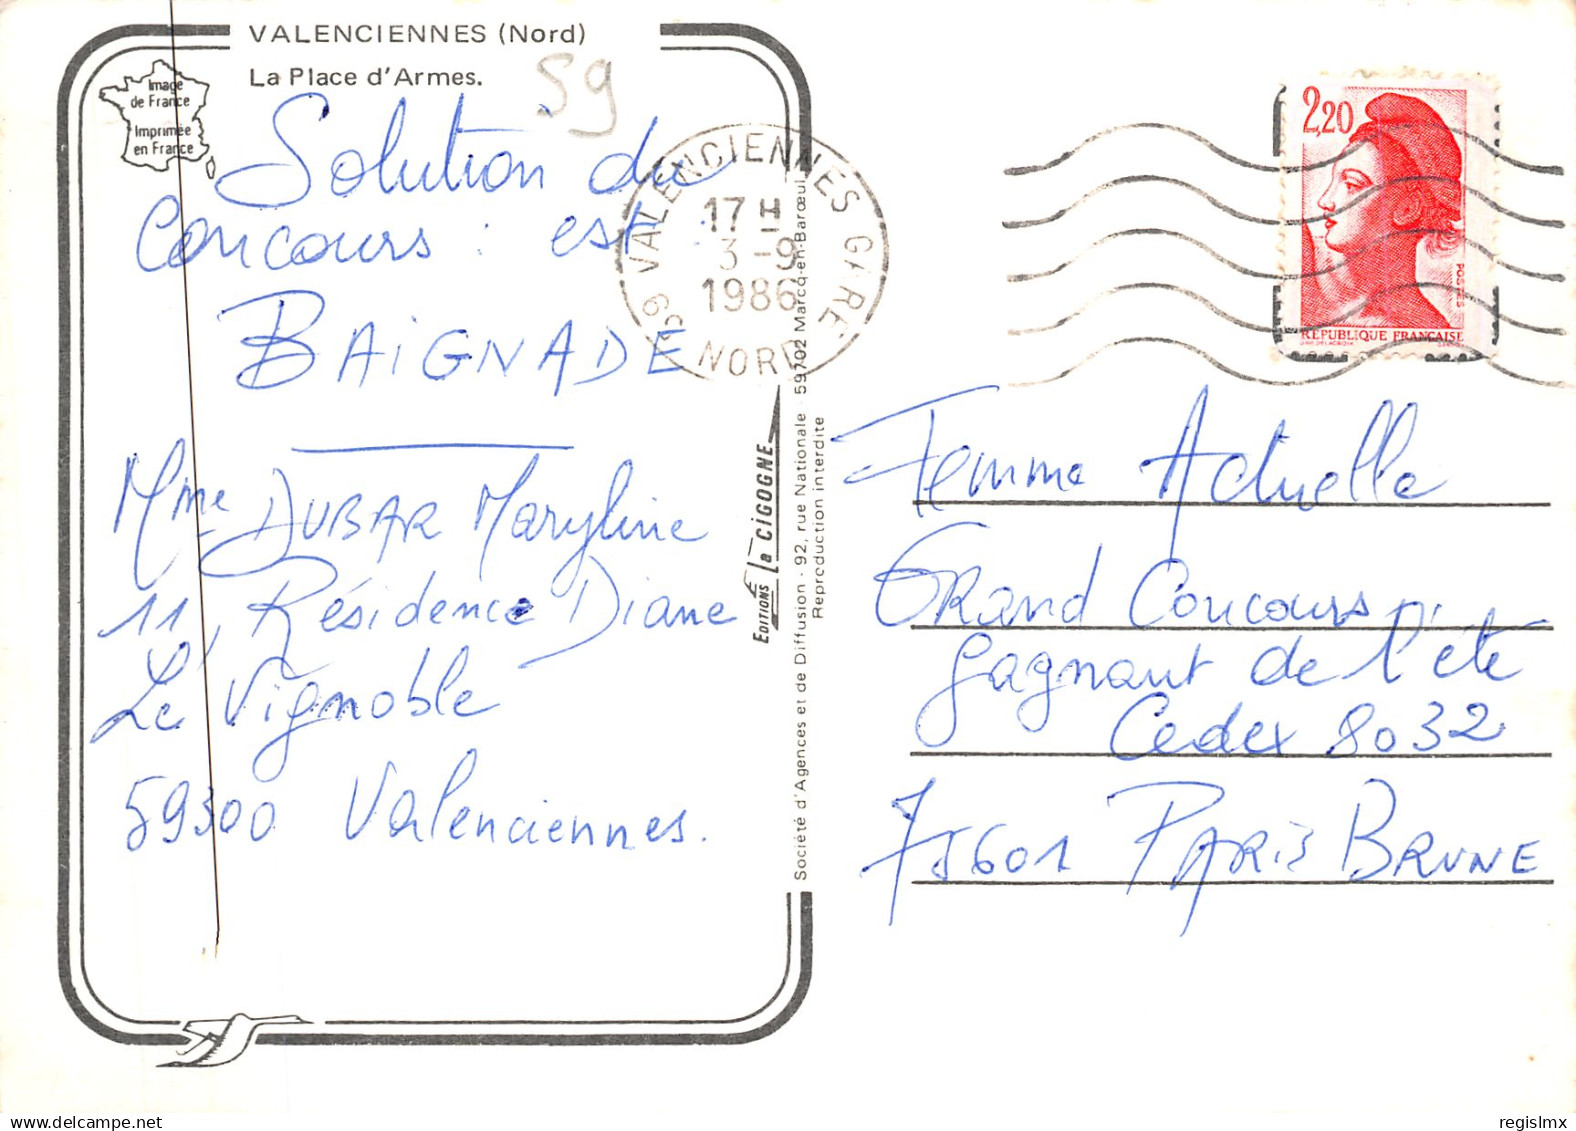 VALENCIENNES (Nord)
La Place d'Armes.
59
Image
de France
Imprimée
en France
Solution du
Concours : est
BAIGNADE
Mme DUBAR Maryline
11, Résidence Diane
Le Vignoble
59300 Valenciennes.
59 VALENCIENNES GARE
17 H
3 -9
1986
NORD
EDITIONS La CIGOGNE
Société d'Agences et de Diffusion - 92, rue Nationale - 59702 Marcq-en-Barœul
Reproduction interdite
2,20
POSTES
RÉPUBLIQUE FRANÇAISE
Femme Actuelle
GRAND Concours
gagnant de l'été
Cedex 8032
75601 PARIS BRUNE
regislmx